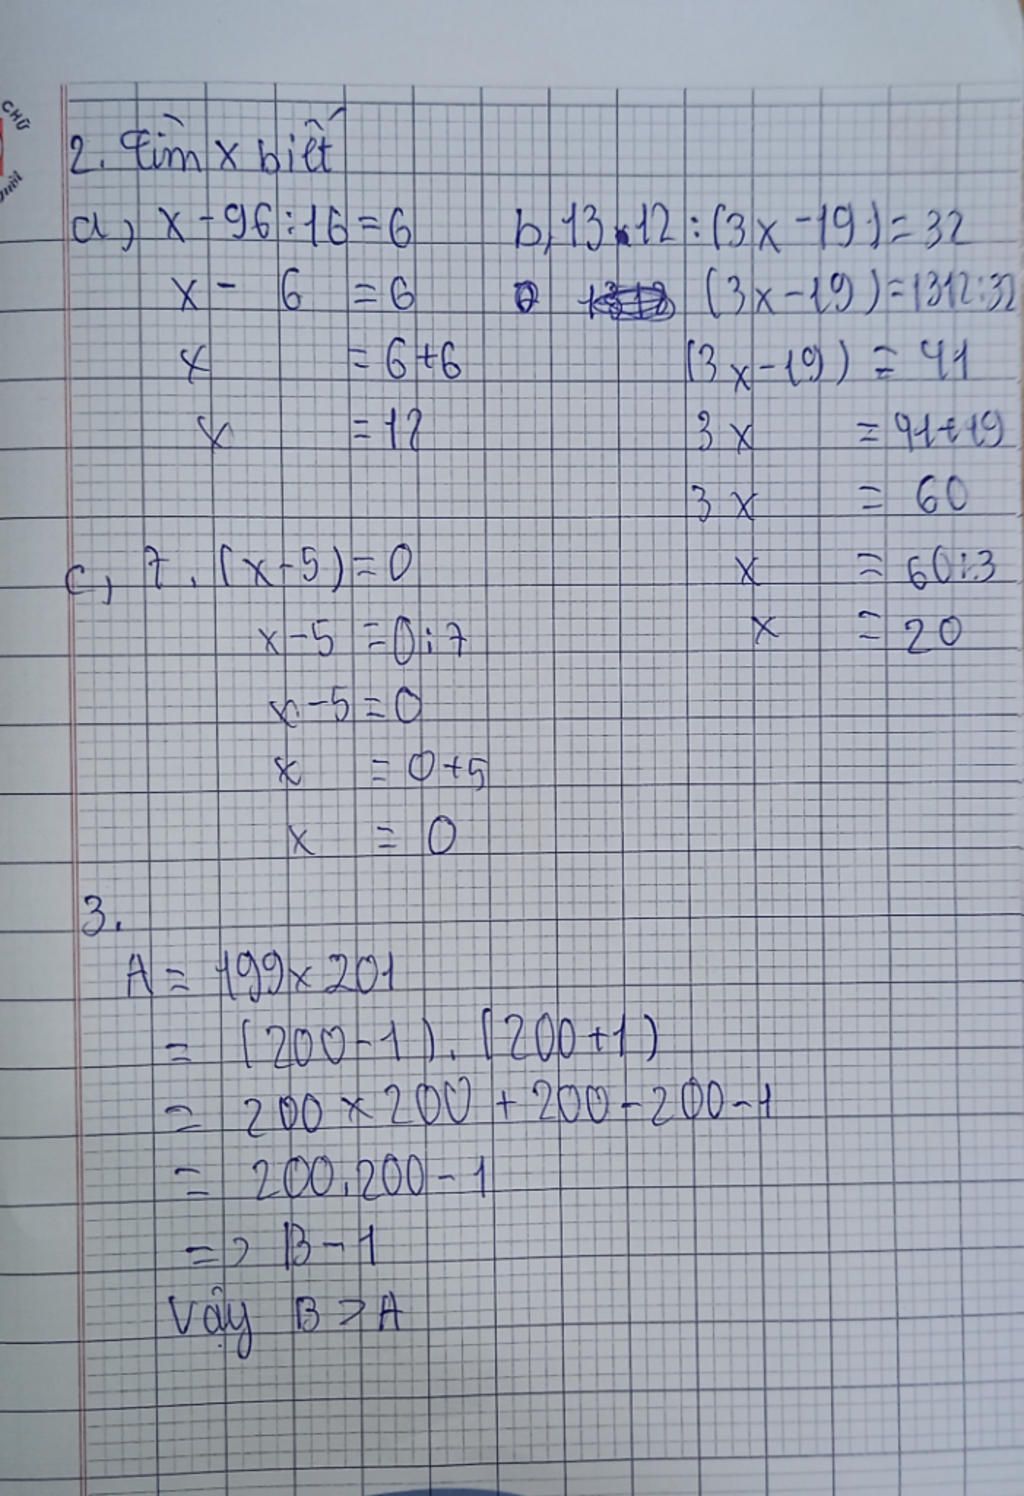 CHỮ
2. Tìm x biết
a, x - 96 : 16 = 6
x - 6 = 6
x = 6 + 6
x = 12
b, 13.12 : (3x - 19) = 32
(3x - 19) = 1312 : 32
(3x - 19) = 41
3x = 41 + 19
3x = 60
x = 60 : 3
x = 20
c, 7. (x - 5) = 0
x - 5 = 0 : 7
x - 5 = 0
x = 0 + 5
x = 0
3.
A = 199 x 201
= (200 - 1) . (200 + 1)
= 200 x 200 + 200 - 200 - 1
= 200.200 - 1
=> B - 1
Vậy B > A